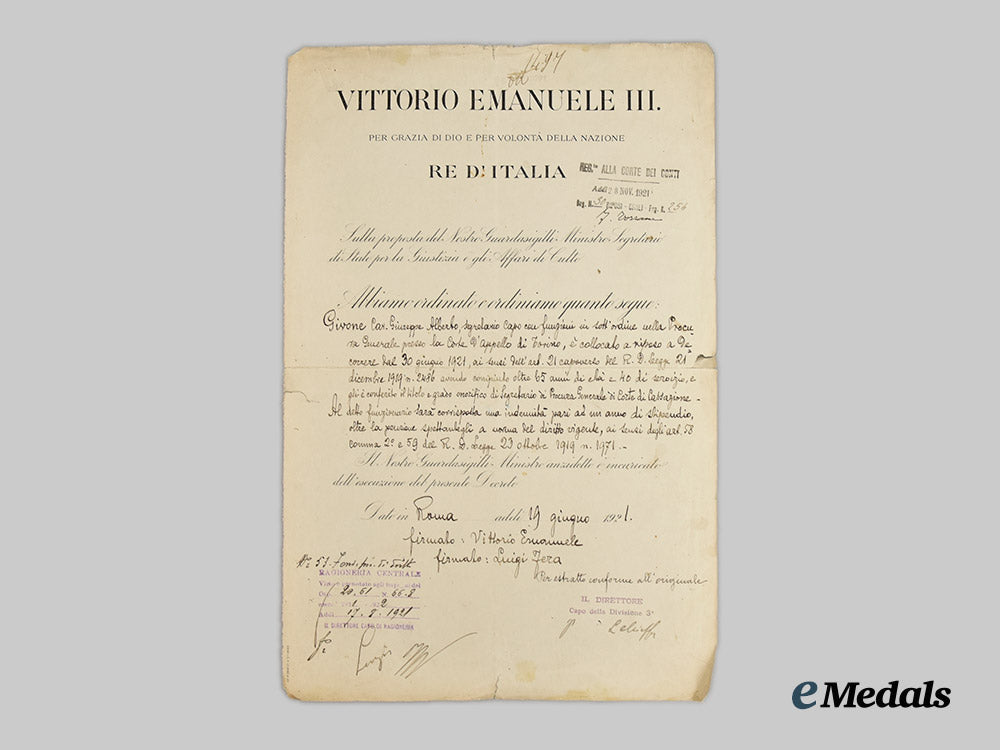 1497
VITTORIO EMANUELE III.
PER GRAZIA DI DIO E PER VOLONTÀ DELLA NAZIONE
RE D'ITALIA
REG.to ALLA CORTE DEI CONTI
Addì 28 NOV. 1921
Reg. N. CIVILI - Fog. N. 256
Sulla proposta del Nostro Guardasigilli Ministro Segretario
di Stato per la Giustizia e gli Affari di Culto
Abbiamo ordinato e ordiniamo quanto segue:
Givone Cav. Giuseppe Alberto, segretario capo con funzioni in sott'ordine nella Procu
ra Generale presso la Corte d'Appello di Torino, è collocato a riposo a de
correre dal 30 giugno 1921, ai sensi dell'art. 21 capoverso del R. D. Legge 21
dicembre 1919 n. 2486 avendo compiuto oltre 65 anni di età e 40 di servizio, e
gli è conferito il titolo e grado onorifico di Segretario di Procura Generale di Corte di Cassazione -
Al detto funzionario sarà corrisposta una indennità pari ad un anno di stipendio,
oltre la pensione spettantegli a norma del diritto vigente, ai sensi degli art. 58
comma 2° e 59 del R. D. Legge 23 ottobre 1919 n. 1971. -
Il Nostro Guardasigilli Ministro anzidetto è incaricato
dell'esecuzione del presente Decreto
Dato in Roma addì 19 giugno 1921.
firmato: Vittorio Emanuele
firmato: Luigi Fera
Per estratto conforme all'originale
RAGIONERIA CENTRALE
Addì 17.8.1921
IL DIRETTORE CAPO DI RAGIONERIA
IL DIRETTORE
Capo della Divisione 3ª
eMedals